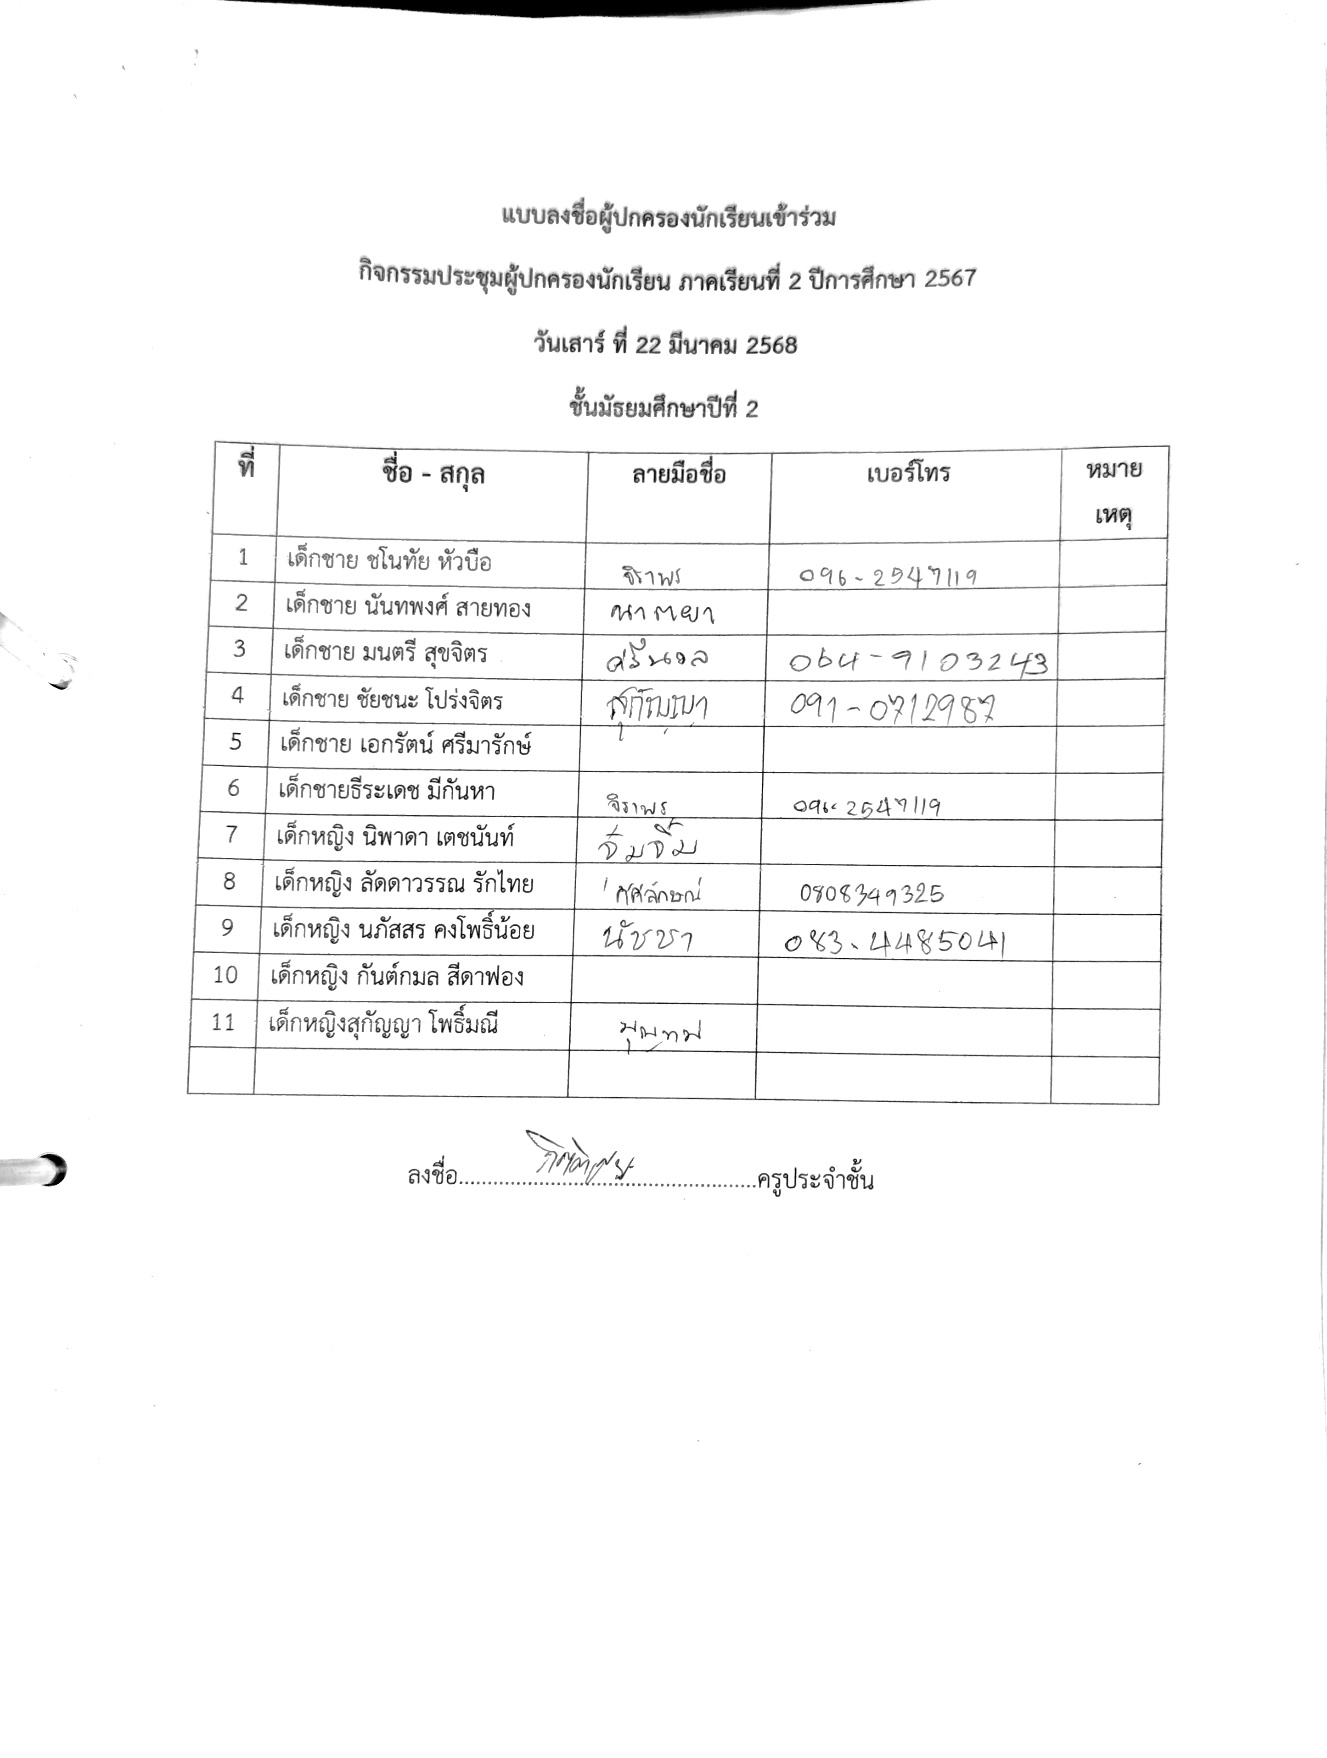 แบบลงชื่อผู้ปกครองนักเรียนเข้าร่วม
กิจกรรมประชุมผู้ปกครองนักเรียน ภาคเรียนที่ 2 ปีการศึกษา 2567
วันเสาร์ ที่ 22 มีนาคม 2568
ชั้นมัธยมศึกษาปีที่ 2
ที่ ชื่อ - สกุล ลายมือชื่อ เบอร์โทร หมาย
เหตุ
1 เด็กชาย ชโนทัย หัวบือ จิราพร 096-2547119
2 เด็กชาย นันทพงศ์ สายทอง นาตยา
3 เด็กชาย มนตรี สุขจิตร ศรีนวล 064-9103243
4 เด็กชาย ชัยชนะ โปร่งจิตร สุกัญญา 091-0712987
5 เด็กชาย เอกรัตน์ ศรีมารักษ์
6 เด็กชายธีระเดช มีกันหา จิราพร 096-2547119
7 เด็กหญิง นิพาดา เตชนันท์ จิ๋มจิ๋ม
8 เด็กหญิง ลัดดาวรรณ รักไทย 0808349325
9 เด็กหญิง นภัสสร คงโพธิ์น้อย นัชชา 083-4485041
10 เด็กหญิง กันต์กมล สีดาฟอง
11 เด็กหญิงสุกัญญา โพธิ์มณี
ลงชื่อ..................................................ครูประจำชั้น